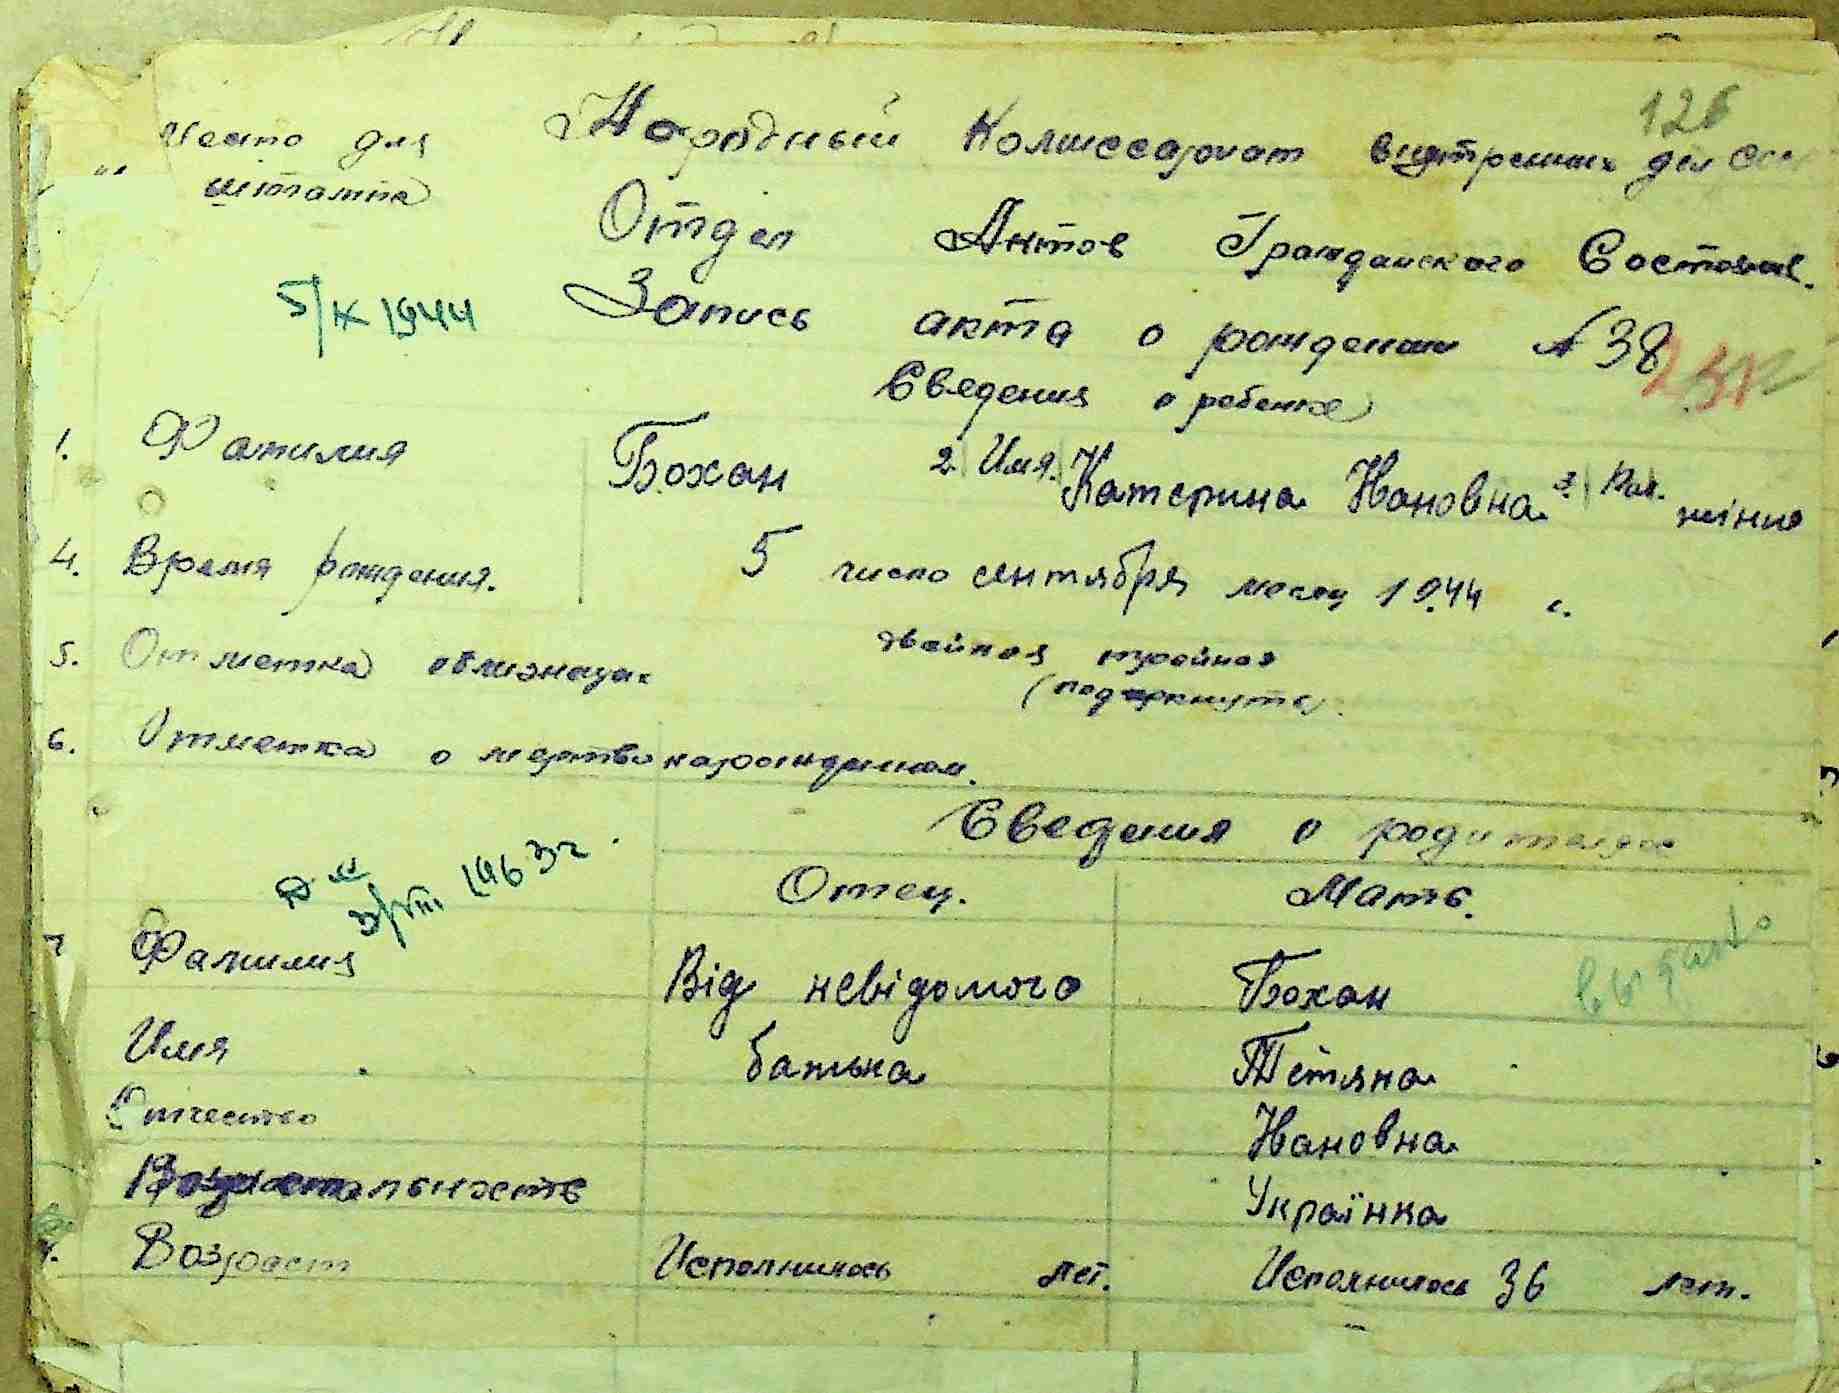 126
Место для Народный Комиссариат внутренних дел
штампа
Отдел Актов Гражданского Состояния.
5/IX 1944 Запись акта о рождении № 38
Сведения о ребенке
1. Фамилия Бохан 2. Имя. Катерина Ивановна 3. Пол. жіноч
4. Время рождения. 5 число сентября месяц 1944 г.
5. Отметка о близнецах двойная тройная
(подчеркнуть)
6. Отметка о мертворожденном.
Сведения о родителях
1963 г.
Отец. Мать.
7 Фамилия Від невідомого Бохан выдано
Имя батька Тетяна
Отчество Ивановна
Українка
Возраст Исполнилось лет. Исполнилось 36 лет.